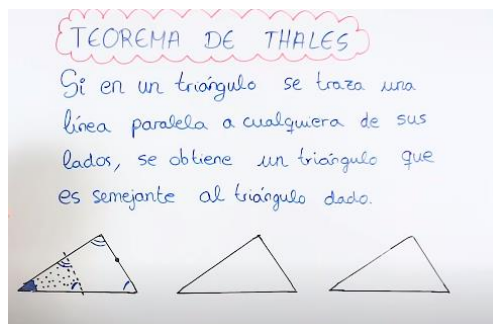 TEOREMA DE THALES
Si en un triángulo se traza una
línea paralela a cualquiera de sus
lados, se obtiene un triángulo que
es semejante al triángulo dado.